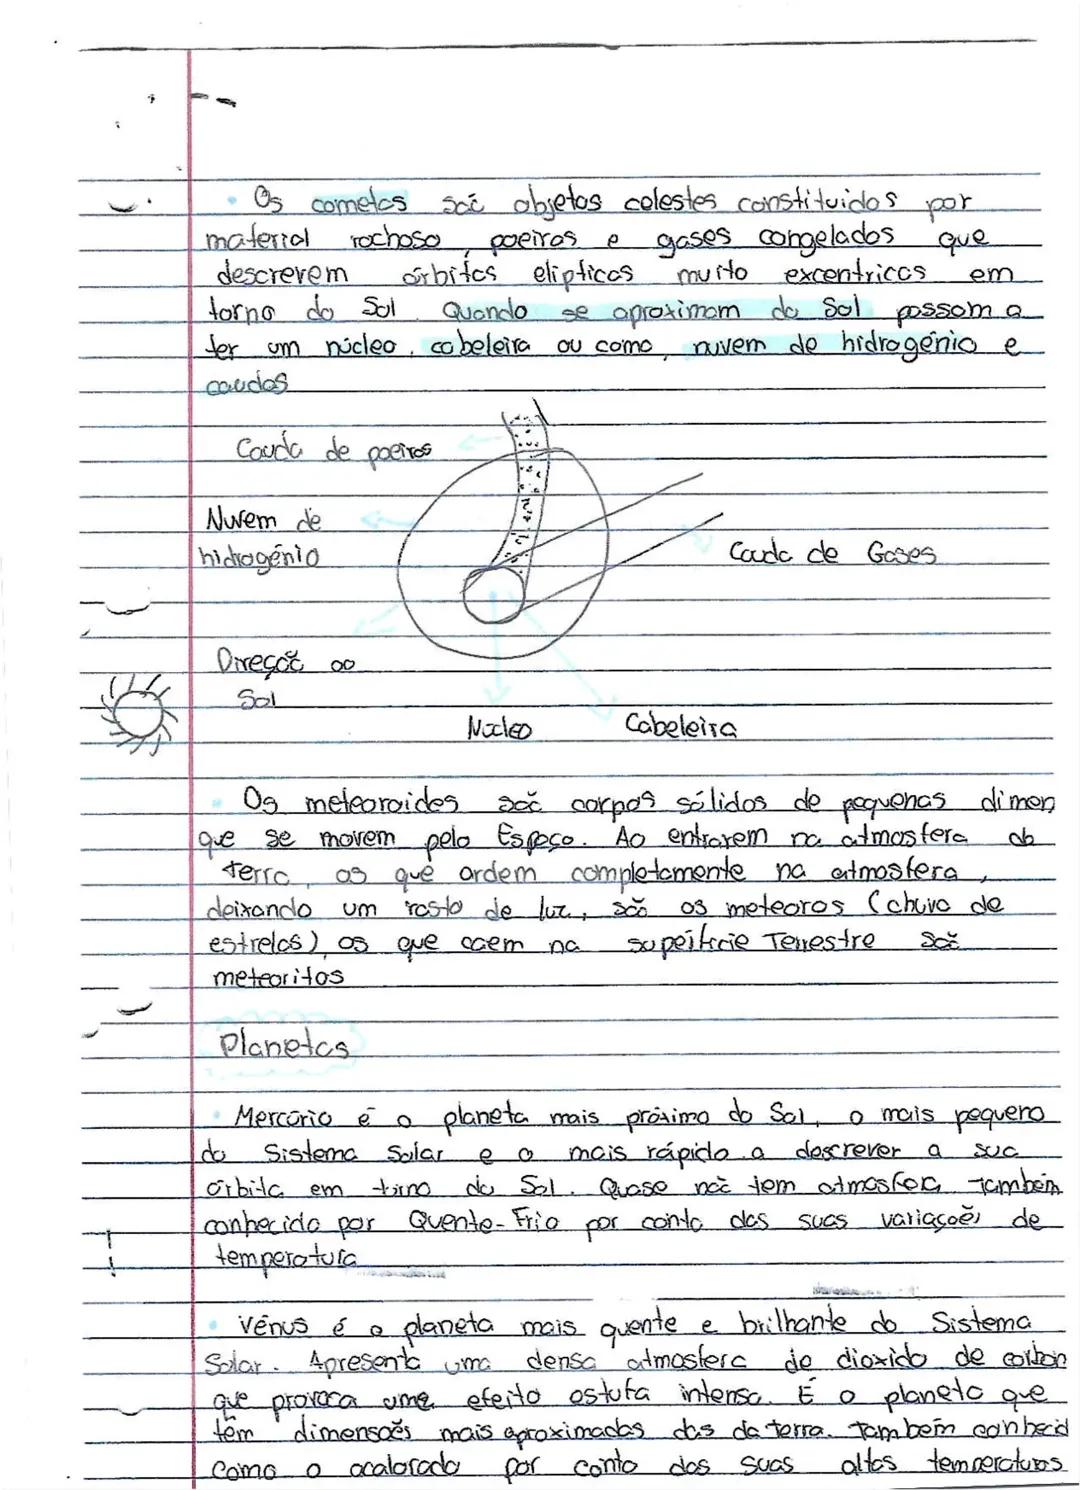 Os cometas são objetos celestes constituidos por
material rochoso, poeiras e gases congelados que
descrevem órbitas elipticas muito excentricas em
torno do Sol. Quando se aproximam do Sol passam a
ter um núcleo, cabeleira ou coma, nuvem de hidrogénio e
caudas
Cauda de poeiras
Nuvem de
hidrogénio
Cauda de Gases
Direção ao
Sol
Núcleo
Cabeleira
Os meteoroides são corpos sólidos de pequenas dimen
que se movem pelo Espaço. Ao entrarem na atmosfera da
terra, os que ardem completamente na atmosfera,
deixando um rasto de luz, são os meteoros (chuva de
estrelas), os que caem na superficie Terrestre são
meteoritos
Planetas
Mercúrio é o planeta mais próximo do Sol, o mais pequeno
do Sistema Solar e o mais rápido a descrever a sua
órbita em torno do Sol. Quase não tem atmosfera também
conhecido por Quente-Frio por conta das suas variações de
temperatura
Vénus é o planeta mais quente e brilhante do Sistema
Solar. Apresenta uma densa atmosfera de dioxido de carbon
que provoca uma efeito estufa intensa. É o planeta que
têm dimensões mais aproximadas das da terra. Também conhecid
como o acalorado por conta das suas altas temperaturas